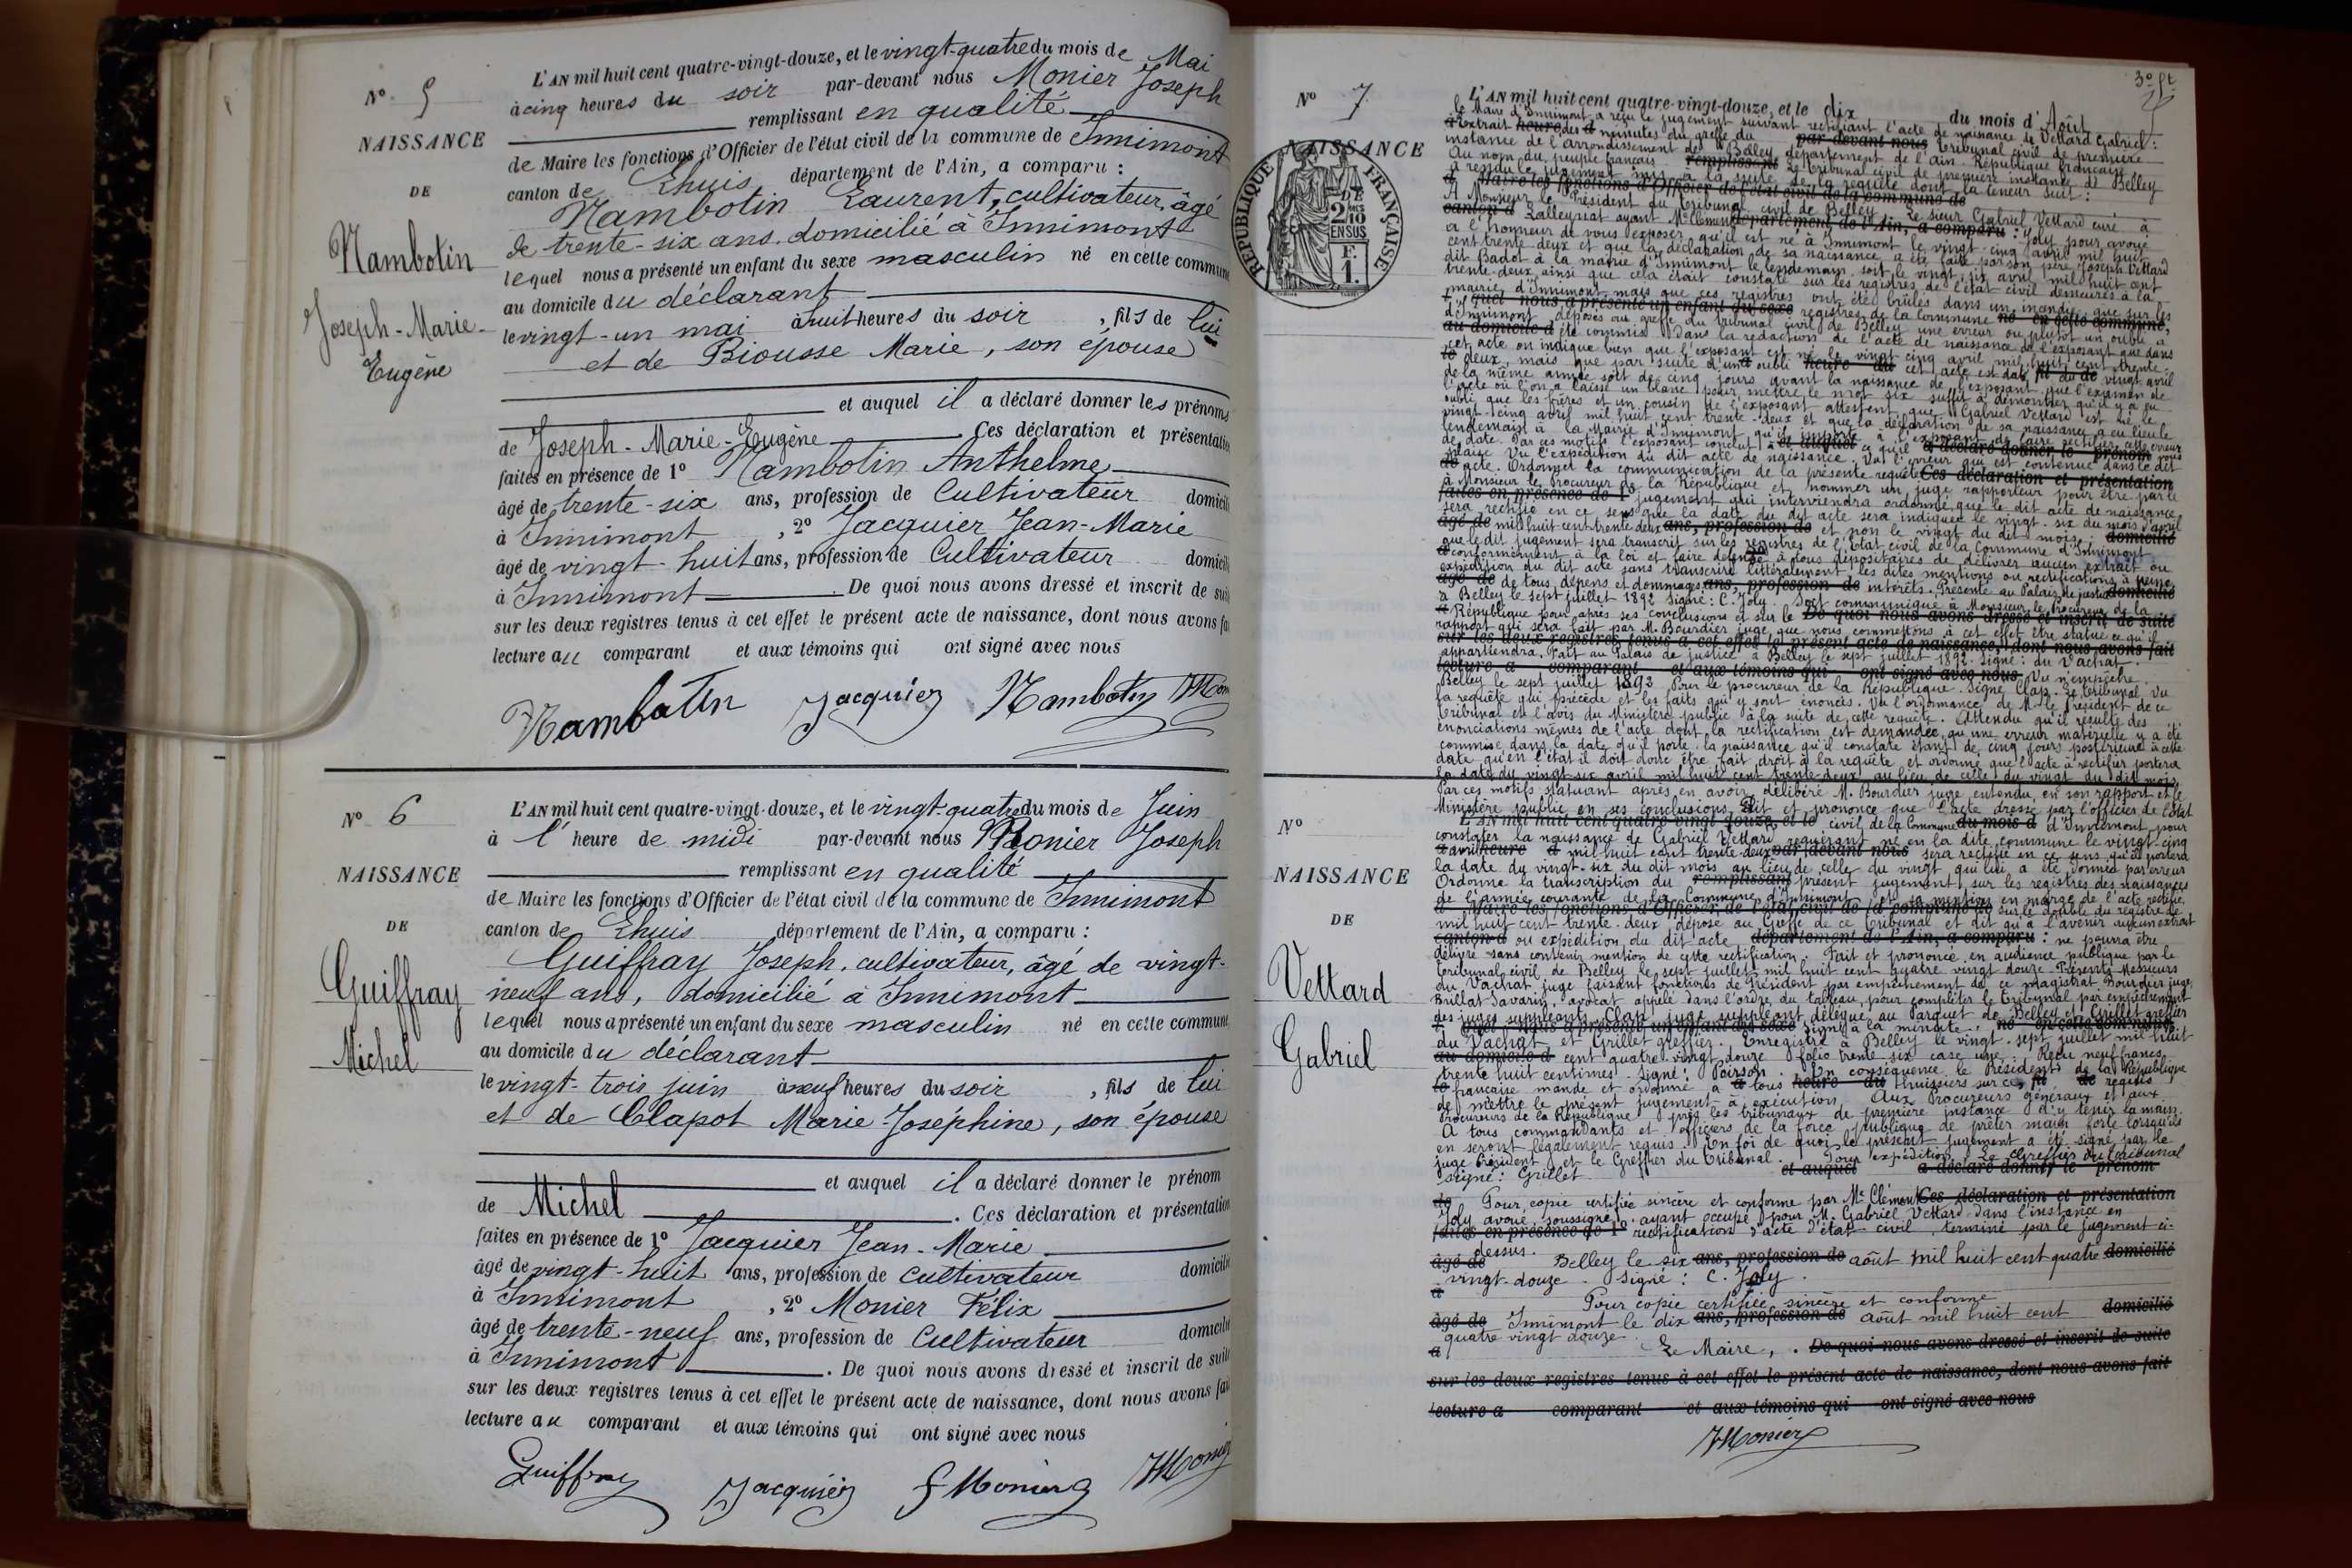 N° 5
NAISSANCE
DE
Nambotin
Joseph-Marie-
Eugène
L'AN mil huit cent quatre-vingt-douze, et le vingt-quatre du mois de Mai
à cinq heures du soir par-devant nous Monier Joseph
remplissant en qualité
de Maire les fonctions d'Officier de l'état civil de la commune de Innimont
canton de Lhuis département de l'Ain, a comparu :
Nambotin Laurent, cultivateur, âgé
de trente-six ans, domicilié à Innimont
lequel nous a présenté un enfant du sexe masculin né en cette commune
au domicile du déclarant
le vingt-un mai à huit heures du soir, fils de lui
et de Biousse Marie, son épouse
et auquel il a déclaré donner les prénoms
de Joseph-Marie-Eugène. Ces déclaration et présentation
faites en présence de 1° Nambotin Anthelme
âgé de trente-six ans, profession de Cultivateur domicilié
à Innimont, 2° Jacquier Jean-Marie
âgé de vingt-huit ans, profession de Cultivateur domicilié
à Innimont. De quoi nous avons dressé et inscrit de suite
sur les deux registres tenus à cet effet le présent acte de naissance, dont nous avons fait
lecture au comparant et aux témoins qui ont signé avec nous
Nambotin Jacquier Nambotin JMonier
N° 6
NAISSANCE
DE
Guiffray
Michel
L'AN mil huit cent quatre-vingt-douze, et le vingt-quatre du mois de Juin
à l'heure de midi par-devant nous Monier Joseph
remplissant en qualité
de Maire les fonctions d'Officier de l'état civil de la commune de Innimont
canton de Lhuis département de l'Ain, a comparu :
Guiffray Joseph, cultivateur, âgé de vingt-
neuf ans, domicilié à Innimont
lequel nous a présenté un enfant du sexe masculin né en cette commune
au domicile du déclarant
le vingt-trois juin à neuf heures du soir, fils de lui
et de Clapot Marie-Joséphine, son épouse
et auquel il a déclaré donner le prénom
de Michel. Ces déclaration et présentation
faites en présence de 1° Jacquier Jean-Marie
âgé de vingt-huit ans, profession de cultivateur domicilié
à Innimont, 2° Monier Félix
âgé de trente-neuf ans, profession de Cultivateur domicilié
à Innimont. De quoi nous avons dressé et inscrit de suite
sur les deux registres tenus à cet effet le présent acte de naissance, dont nous avons fait
lecture au comparant et aux témoins qui ont signé avec nous
Guiffray Jacquier F Monier JMonier
3e ft
N° 7
NAISSANCE
DE
RÉPUBLIQUE FRANÇAISE
2 10MES
EN SUS
F.
1.
L'AN mil huit cent quatre-vingt-douze, et le dix du mois d'Août
le Maire d'Innimont a reçu le jugement suivant rectifiant l'acte de naissance de Vettard Gabriel :
Extrait des minutes du greffe du tribunal civil de première
instance de l'arrondissement de Belley département de l'ain. République française
Au nom du peuple français Le tribunal civil de première instance de Belley
a rendu le jugement mis à la suite de la requête dont la teneur suit :
A Monsieur le Président du tribunal civil de Belley. Le sieur Gabriel Vettard curé à
Lalleyriat ayant Me Clément Joly pour avoué
a l'honneur de vous exposer qu'il est né à Innimont le vingt-cinq avril mil huit
cent trente-deux et que la déclaration de sa naissance a été faite par son père Joseph Vettard
dit Badot à la mairie d'Innimont le lendemain, soit le vingt-six avril mil huit cent
trente-deux ainsi que cela était constaté sur les registres de l'état civil demeurés à la
mairie d'Innimont mais que ces registres ont été brûlés dans un incendie que sur les
registres de la commune
d'Innimont déposés au greffe du tribunal civil de Belley une erreur ou plutôt un oubli a
été commis dans la rédaction de l'acte de naissance de l'exposant que dans
cet acte on indique bien que l'exposant est né le vingt-cinq avril mil huit cent trente-
deux, mais que par suite d'un oubli cet acte est daté du vingt avril
de la même année soit de cinq jours avant la naissance de l'exposant que l'examen de
l'acte où l'on a laissé un blanc pour mettre le mot six suffit à démontrer qu'il y a eu
oubli que les frères et un cousin de l'exposant attestent que Gabriel Vettard est né le
vingt-cinq avril mil huit cent trente-deux et que la déclaration de sa naissance a eu lieu le
lendemain à la Mairie d'Innimont qu'il importe à l'exposant de faire rectifier cette erreur
de date. Par ces motifs l'exposant conclut à ce qu'il vous
plaise Vu l'expédition du dit acte de naissance. Vu l'erreur qui est contenue dans le dit
acte. Ordonner la communication de la présente requête
à Monsieur le Procureur de la République et nommer un juge rapporteur pour être par le
jugement qui interviendra ordonné que le dit acte de naissance
sera rectifié en ce sens que la date du dit acte sera indiquée le vingt-six du mois d'avril
mil huit cent trente deux et non le vingt du dit mois.
que le dit jugement sera transcrit sur les registres de l'Etat civil de la Commune d'Innimont
conformément à la loi et faire défense à tous dépositaires de délivrer aucun extrait ou
expédition du dit acte sans transcrire littéralement les dites mentions ou rectifications à peine
de tous dépens et dommages intérêts. Présenté au Palais de justice
à Belley le sept juillet 1892 Signé : C. Joly. Soit communiqué à Monsieur le Procureur de la
République pour après ses conclusions et sur le
rapport qui sera fait par M. Bourdier juge que nous commettons à cet effet être statué ce qu'il
appartiendra. Fait au Palais de Justice à Belley le sept juillet 1892. Signé : du Vachat.
Vu n'empêche.
Belley le sept juillet 1892 Pour le procureur de la République. Signé Clap. Le tribunal Vu
la requête qui précède et les faits qui y sont énoncés. Vu l'ordonnance de M. le Président de ce
tribunal et l'avis du Ministère public à la suite de cette requête. Attendu qu'il résulte des
énonciations mêmes de l'acte dont la rectification est demandée, qu'une erreur matérielle y a été
commise dans la date qu'il porte. la naissance qu'il constate étant de cinq jours postérieure à cette
date qu'en l'état il doit donc être fait droit à la requête et ordonné que l'acte à rectifier portera
la date du vingt-six avril mil huit cent trente-deux au lieu de celle du vingt du dit mois.
Par ces motifs statuant après en avoir délibéré M. Bourdier juge entendu en son rapport et le
Ministère public en ses conclusions Dit et prononce que l'acte dressé par l'officier de l'état
N°
NAISSANCE
DE
Vettard
Gabriel
civil de la Commune d'Innimont pour
constater la naissance de Gabriel Vettard requérant né en la dite commune le vingt-cinq
avril mil huit cent trente-deux sera rectifié en ce sens qu'il portera
la date du vingt-six du dit mois au lieu de celle du vingt qui lui a été donnée par erreur
Ordonne la transcription du présent jugement sur les registres des naissances
de l'année courante de la Commune d'Innimont et sa mention en marge de l'acte rectifié
sur le double du registre de
mil huit cent trente-deux déposé au Greffe de ce tribunal et dit qu'à l'avenir aucun extrait
ou expédition du dit acte ne pourra être
délivré sans contenir mention de cette rectification. Fait et prononcé en audience publique par le
tribunal civil de Belley le sept juillet mil huit cent quatre vingt douze. Présents Messieurs
du Vachat, juge faisant fonctions de Président par empêchement de ce magistrat, Bourdier juge,
Brillat Savarin, avocat appelé dans l'ordre du tableau pour compléter le tribunal par empêchement
des juges suppléants. Clap juge suppléant délégué au Parquet de Belley et Grillet greffier
Signé à la minute :
du Vachat et Grillet greffier. Enregistré à Belley le vingt-sept juillet mil huit
cent quatre-vingt douze folio trente-six case une. Reçu neuf francs
trente huit centimes. Signé : Poirson. En conséquence le Président de la République
française mande et ordonne à tous huissiers sur ce requis
de mettre le présent jugement à exécution. Aux Procureurs généraux et aux
Procureurs de la République près les tribunaux de première instance d'y tenir la main
A tous commandants et officiers de la force publique de prêter main forte lorsqu'ils
en seront légalement requis. En foi de quoi le présent jugement a été signé par le
juge Président et le Greffier du tribunal. Pour expédition. Le Greffier du tribunal
Signé : Grillet.
Pour copie certifiée sincère et conforme par Me Clément
Joly avoué soussigné ayant occupé pour M. Gabriel Vettard dans l'instance en
rectification d'acte d'état civil terminé par le jugement ci-
dessus. Belley le six août mil huit cent quatre
vingt-douze. Signé : C. Joly.
Pour copie certifiée sincère et conforme
Innimont le dix août mil huit cent
quatre vingt douze.
Le Maire,
JMonier